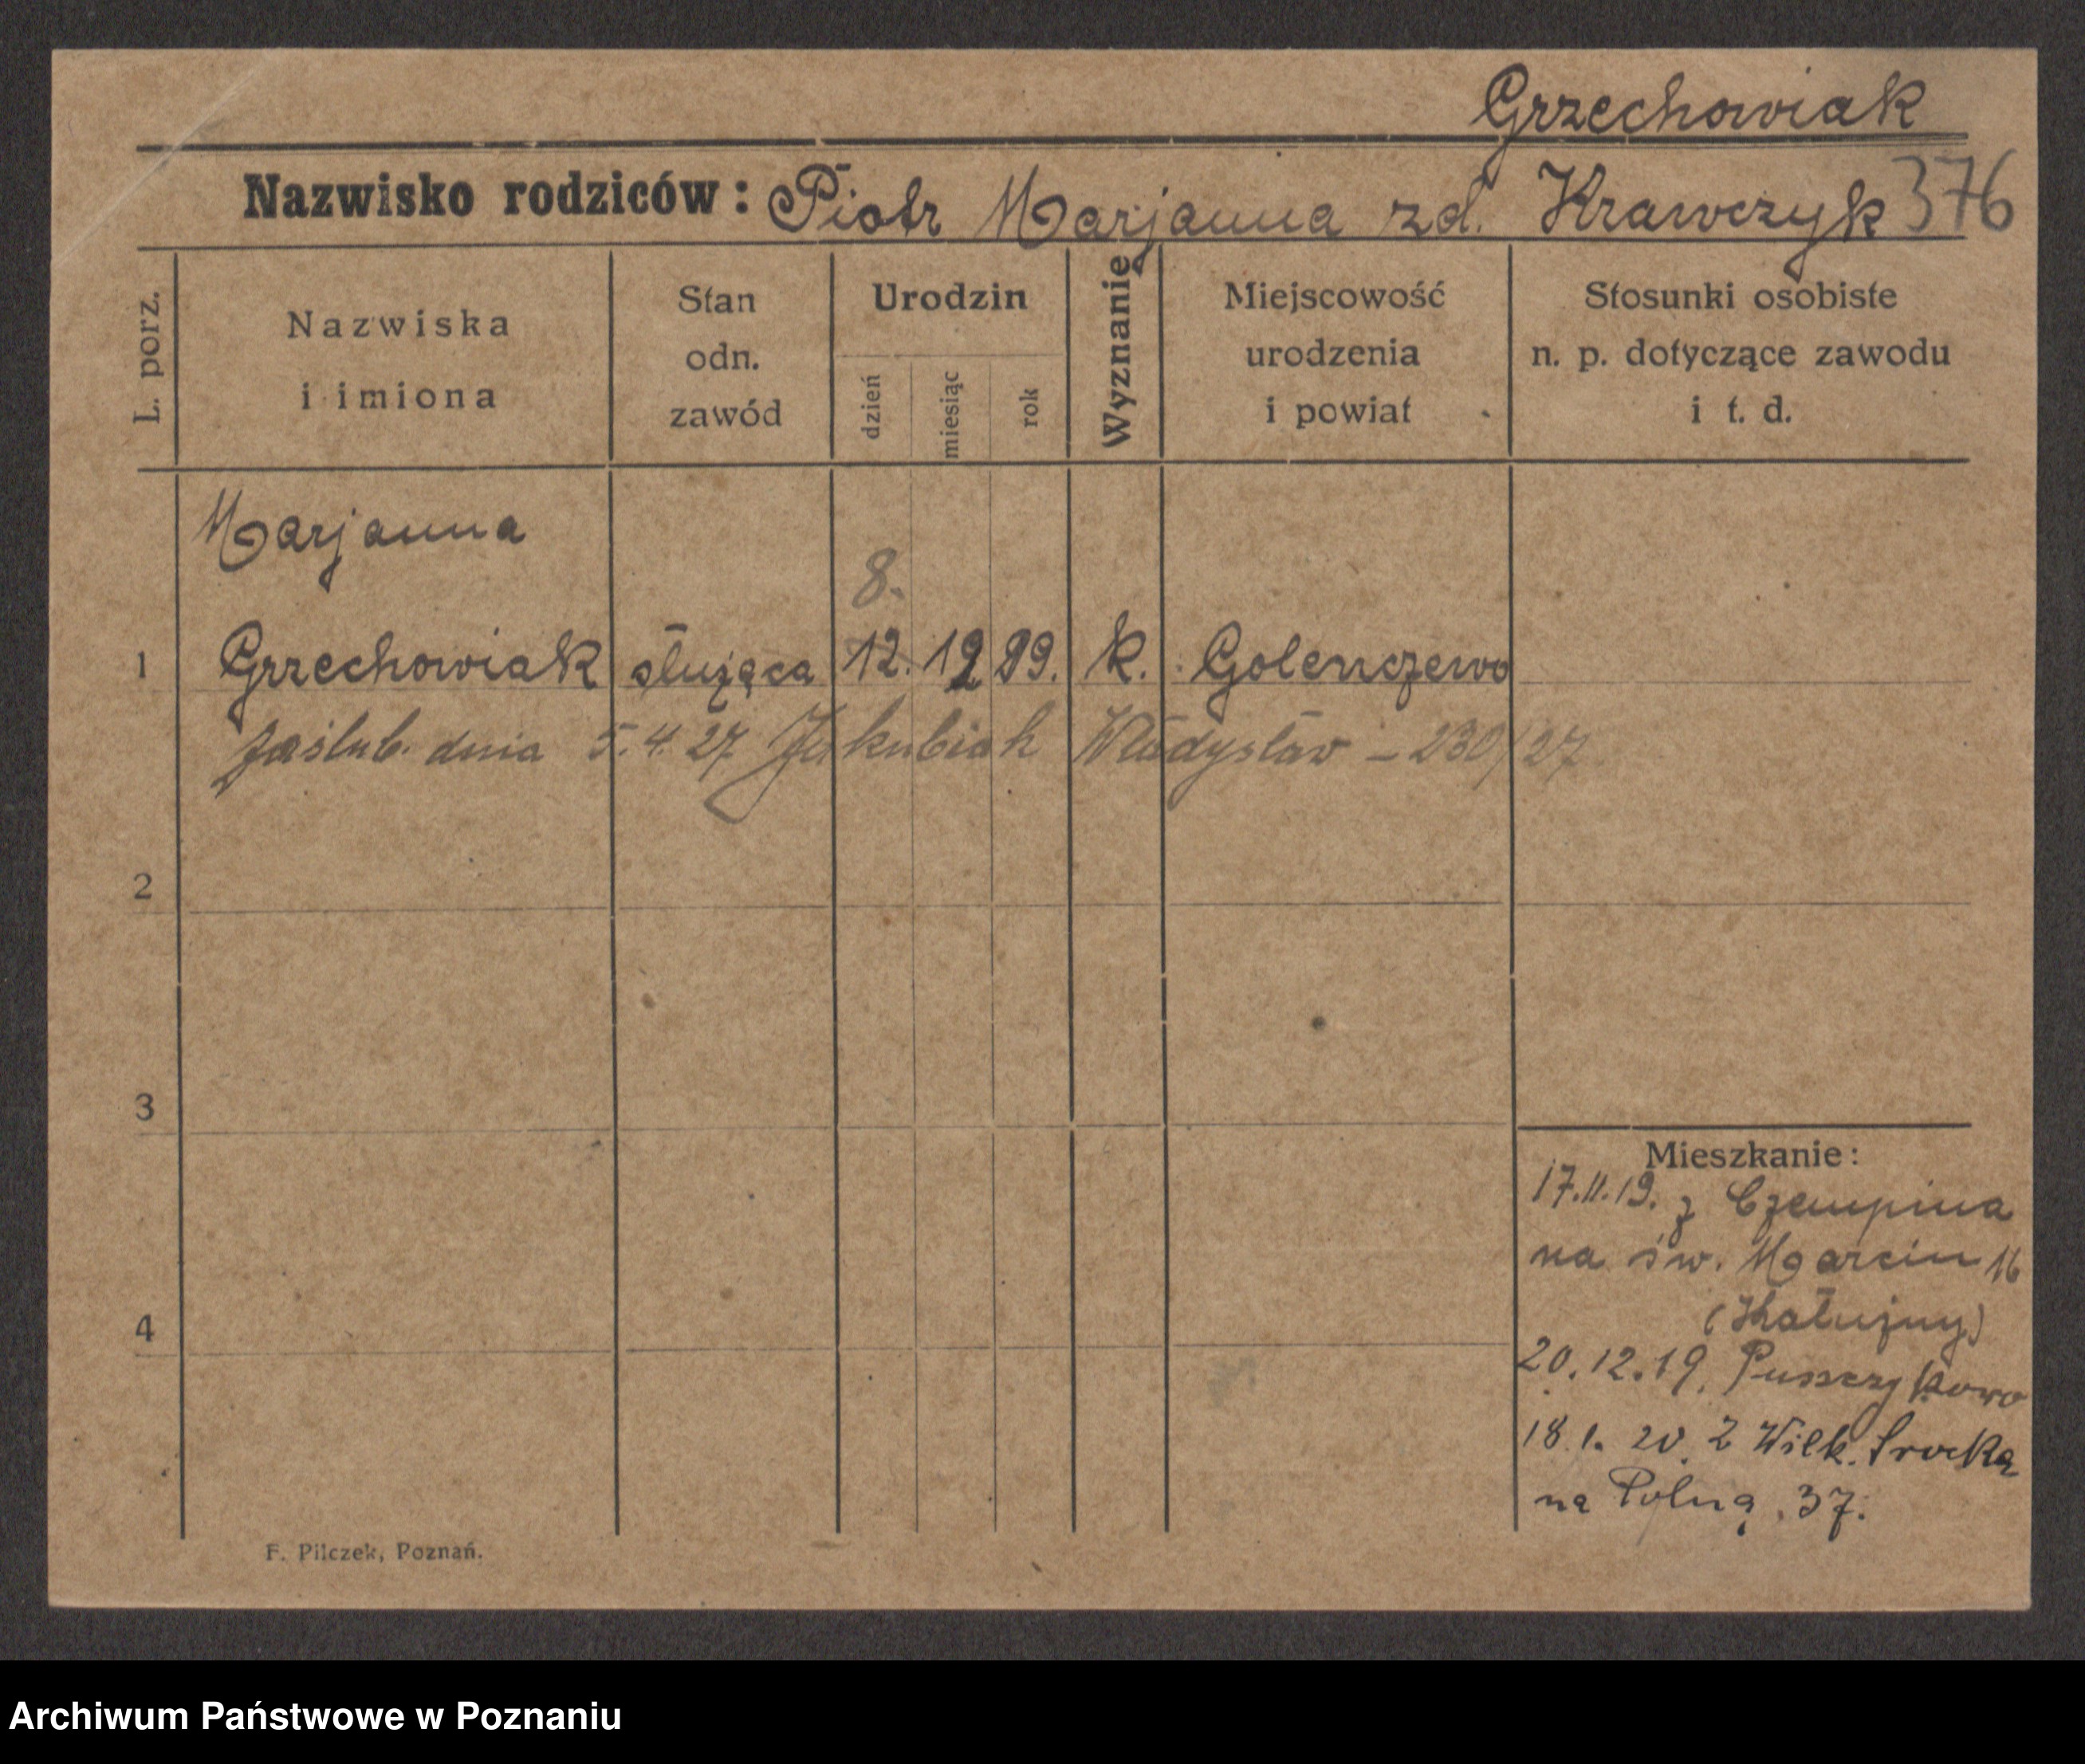 Grzechowiak
Nazwisko rodziców: Piotr Marjanna zd. Krawczyk 376
L. porz.
Nazwiska
i imiona
Stan
odn.
zawód
Urodzin
dzień
miesiąc
rok
Wyznanie
Miejscowość
urodzenia
i powiat
Stosunki osobiste
n. p. dotyczące zawodu
i t. d.
Marjanna
8.
1 Grzechowiak służąca 12. 12 99. k. Golenczewo
zaślub. dnia 5. 4. 27 Jakubiak Władysław – 230/27
2
3
4
Mieszkanie:
17.11.19. z Czempina
na św. Marcin 16
(Kałużny)
20.12.19. Puszczykowo
18.1.20. Z Wilk. Srocka
na Polną 37.
F. Pilczek, Poznań.
Archiwum Państwowe w Poznaniu